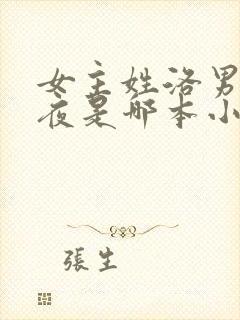 女主姓洛男
夜是哪本小
張生